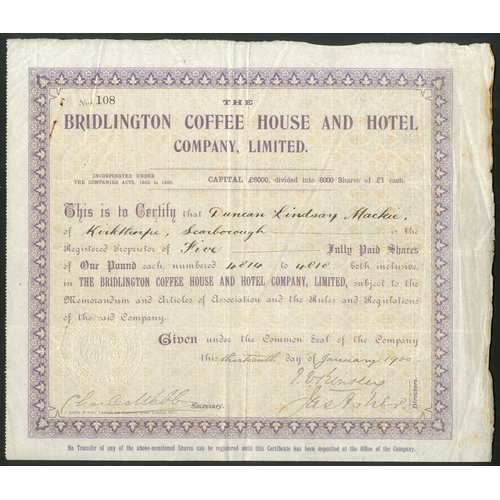 No. 108
THE
BRIDLINGTON COFFEE HOUSE AND HOTEL
COMPANY, LIMITED.
INCORPORATED UNDER
THE COMPANIES ACTS,
CAPITAL £8000, divided into 8000 Shares of £1 each.
This is to Certify that Duncan Lindsay Mackie,
of Kirkthorpe, Scarborough is the
Registered Proprietor of Five Fully Paid Shares
of One Pound each, numbered 4814 to 4818 both inclusive,
in THE BRIDLINGTON COFFEE HOUSE AND HOTEL COMPANY, LIMITED, subject to the
Memorandum and Articles of Association and the Rules and Regulations
of the said Company.
Given under the Common Seal of the Company
this thirteenth day of January 1900
Charles Webb
Secretary.
Directors.
No Transfer of any of the above-mentioned Shares can be registered until this Certificate has been deposited at the Office of the Company.